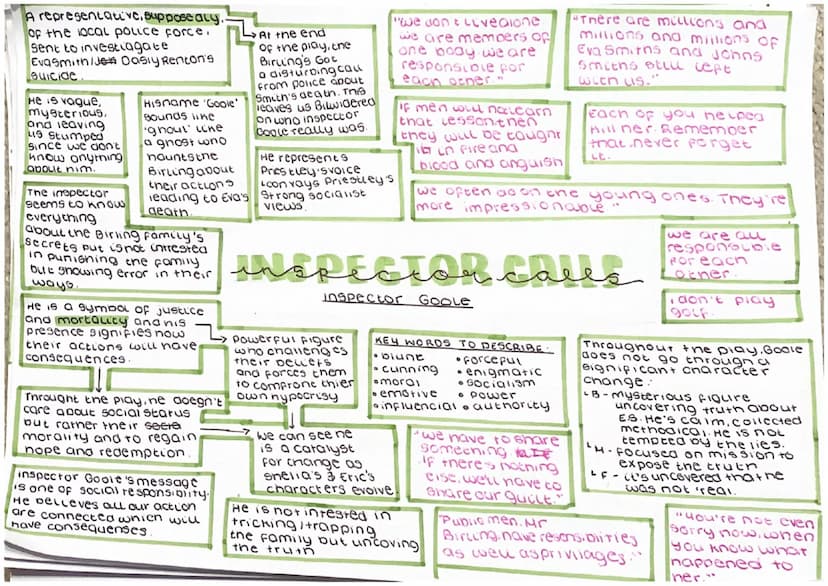 A representative, supposedly,
of the local police force,
sent to investiagate
Eva Smith/ Dasiy Renton's
suicide.
At the end
of the play, the
Birling's Got
a disturbing call
from police about
Smith's death. This
leaves us Biwildered
on who inspector
Goole really was.
"We don't live alone
we are members of
one body we are
responsible for
each other."
"There are millions and
millions and millions of
Eva Smiths and Johns
Smiths still left
with us."
He is vague,
mysterious,
and leaving
us stumped
since we dont
know anything
about him.
His name 'Goole'
sounds like
'ghoul' like
a ghost who
haunts the
Birling about
their actions
leading to Eva's
death.
He represents
Priestley's voice
conveys Priestley's
strong socialist
views.
If men will not learn
that lesson then
they will be taught
it in fire and
blood and anguish
Each of you helped
kill her. Remember
that. never forget
it.
we often do on the young ones. They're
more impressionable."
The inspector
seems to know
everything
about the Birling family's
secrets but is not intrested
in punishing the family
but showing error in their
ways.
INSPECTOR CALLS
inspector calls
Inspector Goole
we are all
responsible
for each
other.
I don't play
golf.
He is a symbol of justice
and mortality and his
presence signifies how
their actions will have
consequences.
Powerful figure
who challenges
their beliefs
and forces them
to comfront thier
own hypocrisy
KEY WORDS TO DESCRIBE:
• blunt
• cunning
• moral
• emotive
• influencial
• forceful
• enigmatic
• socialism
• power
• authority
Throughout the play, Goole
does not go through a
significant character
change:
↳ B - mysterious figure
uncovering truth about
E.S. He's calm, collected
methodical. He is not
tempted by the lies.
↳ M - focused on mission to
expose the truth
↳ F - it's uncovered that he
was not 'real.
Throught the play, he doesn't
care about social status
but rather their
morality and to regain
hope and redemption.
We can see he
is a catalyst
for change as
Sheila's & Eric's
characters evolve
"we have to share
something
If there's nothing
else, we'll have to
share our guilt."
Inspector Goole's message
is one of social responsiblity.
He believes all our action
are connected which will
have consequences.
He is not interested in
tricking/trapping
the family but uncoving
the truth
"Public men, Mr
Birling, have resensibilities
as well as privilages."
"You're not even
sorry now, when
you know what
happened to
her."